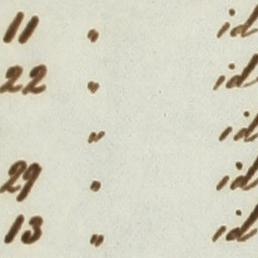 11 " id
22 " id
" id
29 " id
13 " id